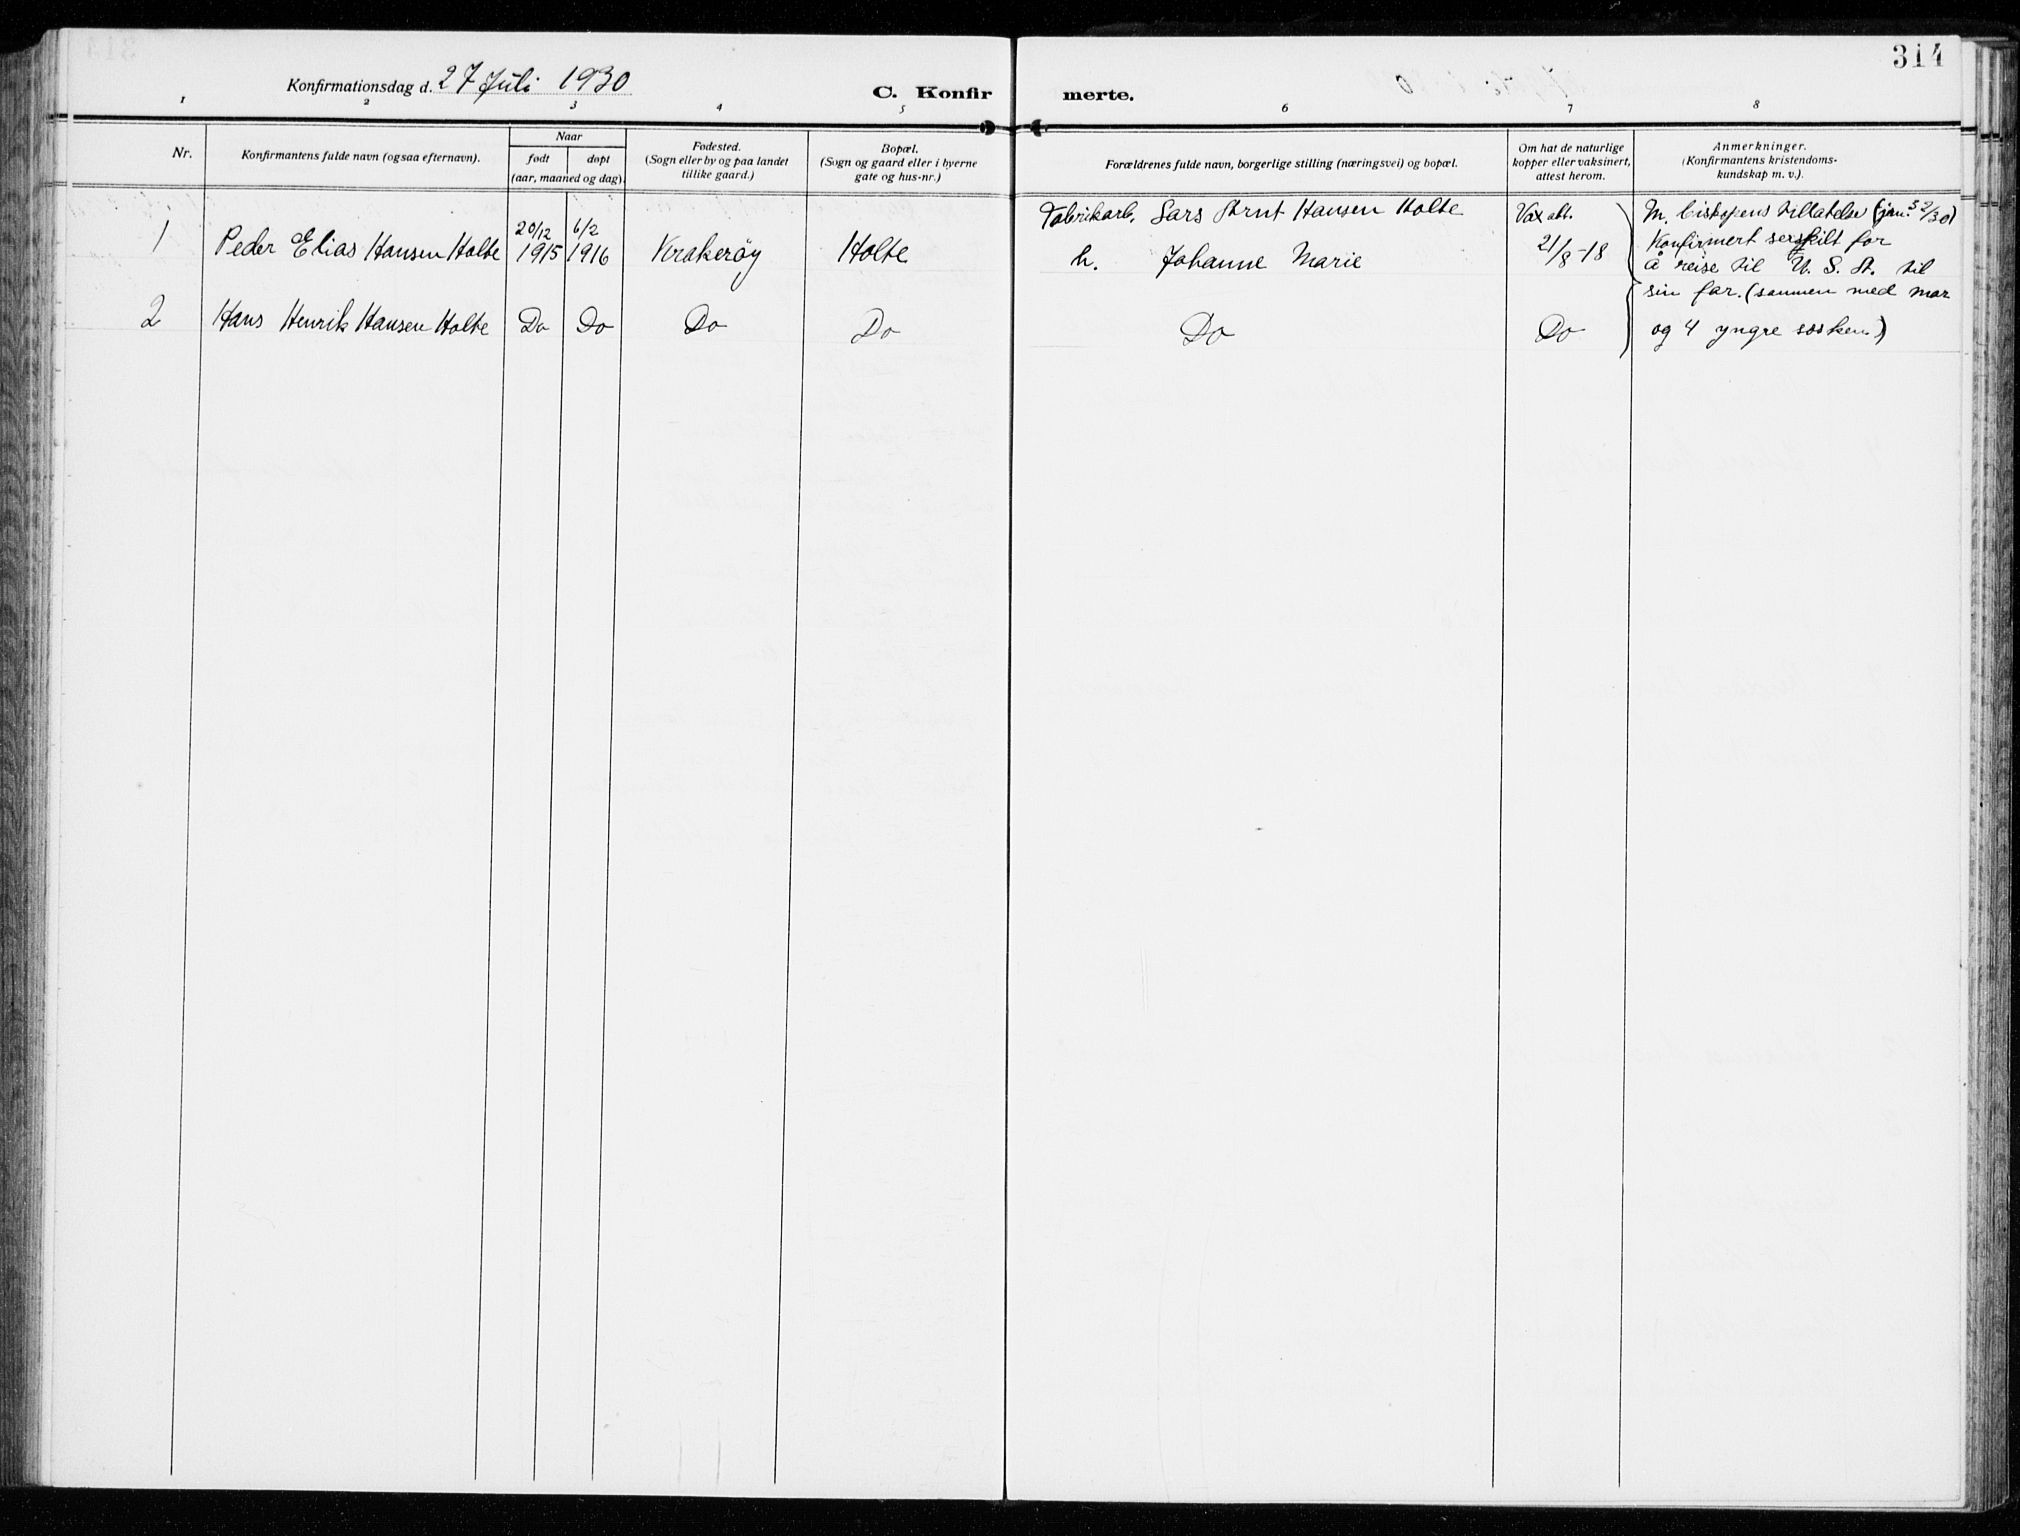 314
Konfirmationsdag d. 27 Juli 1930
C. Konfirmerte.
1 2 3 4 5 6 7 8
Nr.
Konfirmantens fulde navn (ogsaa efternavn).
Naar
født døpt
(aar, maaned og dag).
Fødested.
(Sogn eller by og paa landet
tillike gaard.)
Bopæl.
(Sogn og gaard eller i byerne
gate og hus-nr.)
Forældrenes fulde navn, borgerlige stilling (næringsvei) og bopæl.
Om hat de naturlige
kopper eller vaksinert,
attest herom.
Anmerkninger.
(Konfirmantens kristendoms-
kundskap m. v.).
1 Peder Elias Hansen Holte 20/12 1915 6/2 1916 Krakerøy Holte
Fabrikarb. Lars Arnt Hansen Holte
h. Johanne Marie
Vax att.
21/8-18
M. biskopens tillatelse (jrn. 32/30)
Konfirmert særskilt for
å reise til U. S. A. til
sin far. (sammen med mor
og 4 yngre søsken)
2 Hans Henrik Hansen Holte Do Do Do Do Do Do